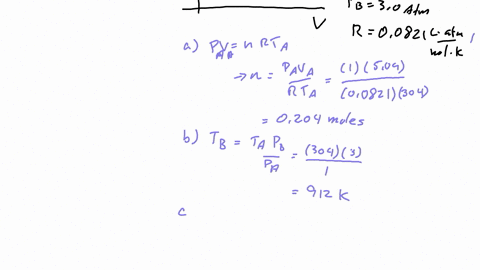 V
T_B = 3.0 Atm
R = 0.0821 L·atm / mol·K
a) P_A V_A = n R T_A
→ n = P_A V_A / R T_A = (1)(5.04) / (0.0821)(304)
= 0.204 moles
b) T_B = T_A P_B / P_A = (304)(3) / 1
= 912 K
c